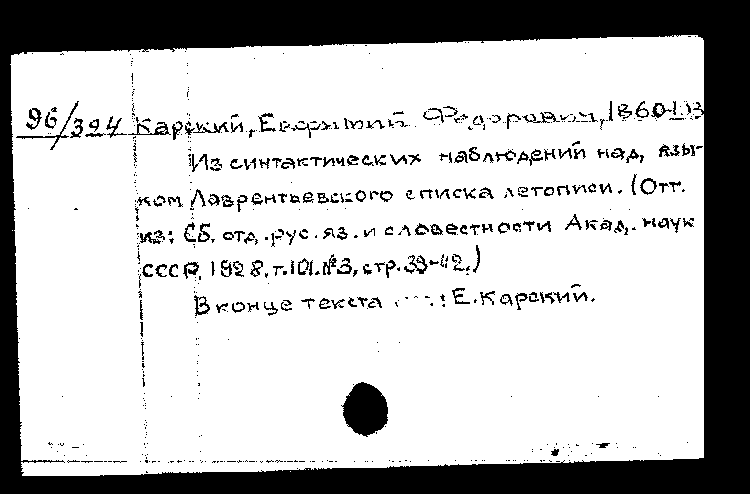 96/394 Карский, Евфимий Федорович, 1860-
Из синтактических наблюдений над язы-
ком Лаврентьевского списка летописи. (Отт.
из: Сб. отд. рус. яз. и словестности Акад. наук
СССР, 1928, т. 101. №3, стр. 39-42.)
В конце текста : Е. Карский.